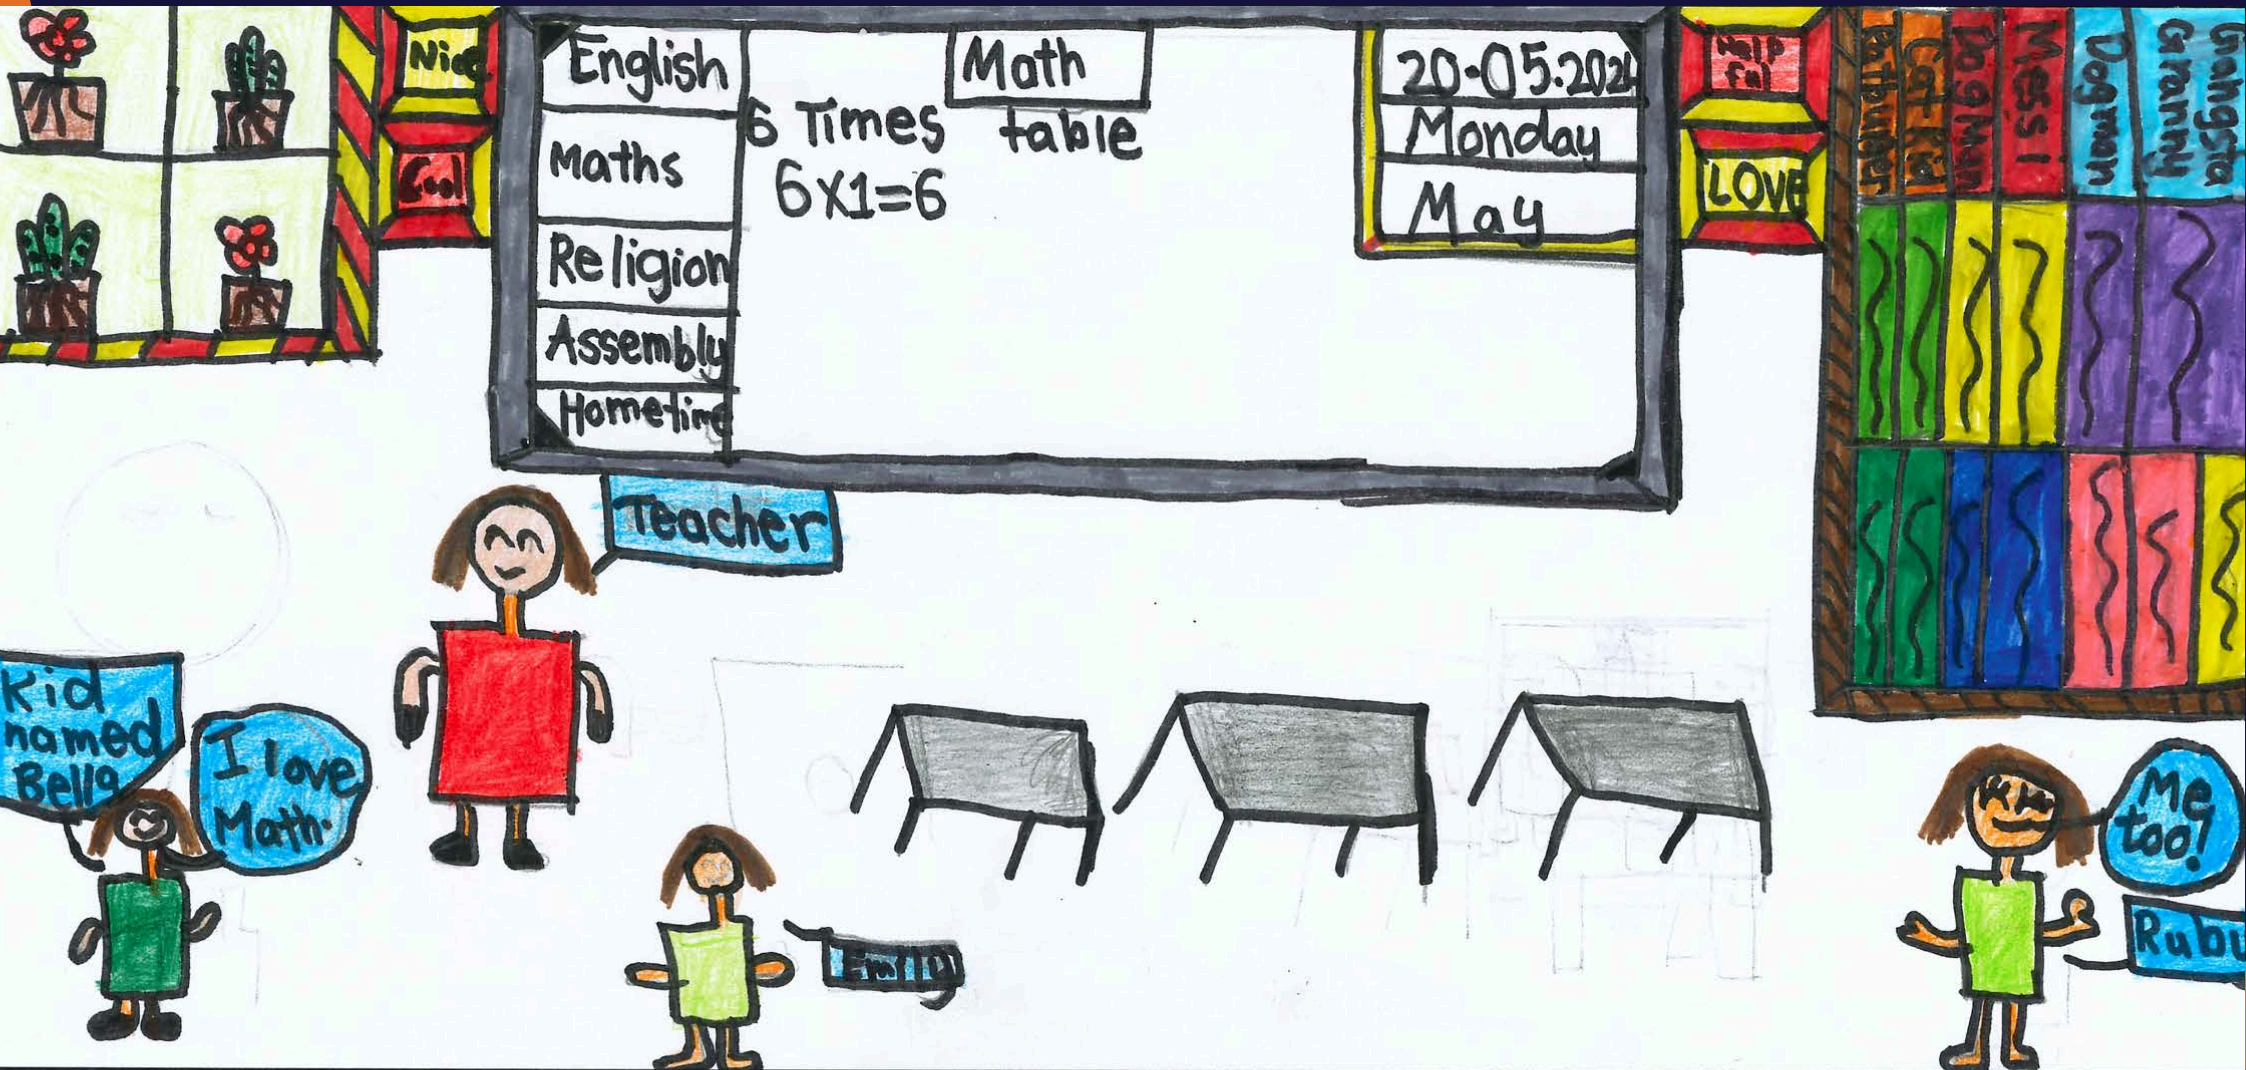 Nice
Cool
English
Maths
Religion
Assembly
Hometime
Math
6 Times table
6x1=6
20-05.2024
Monday
May
Help
ful
LOVE
Ratburger
Cat Kid
Dog Man
Messi
Dogman
Gangsta
Granny
Teacher
Kid
named
Bella
I love
Math.
Emily
Me
too!
Ruby